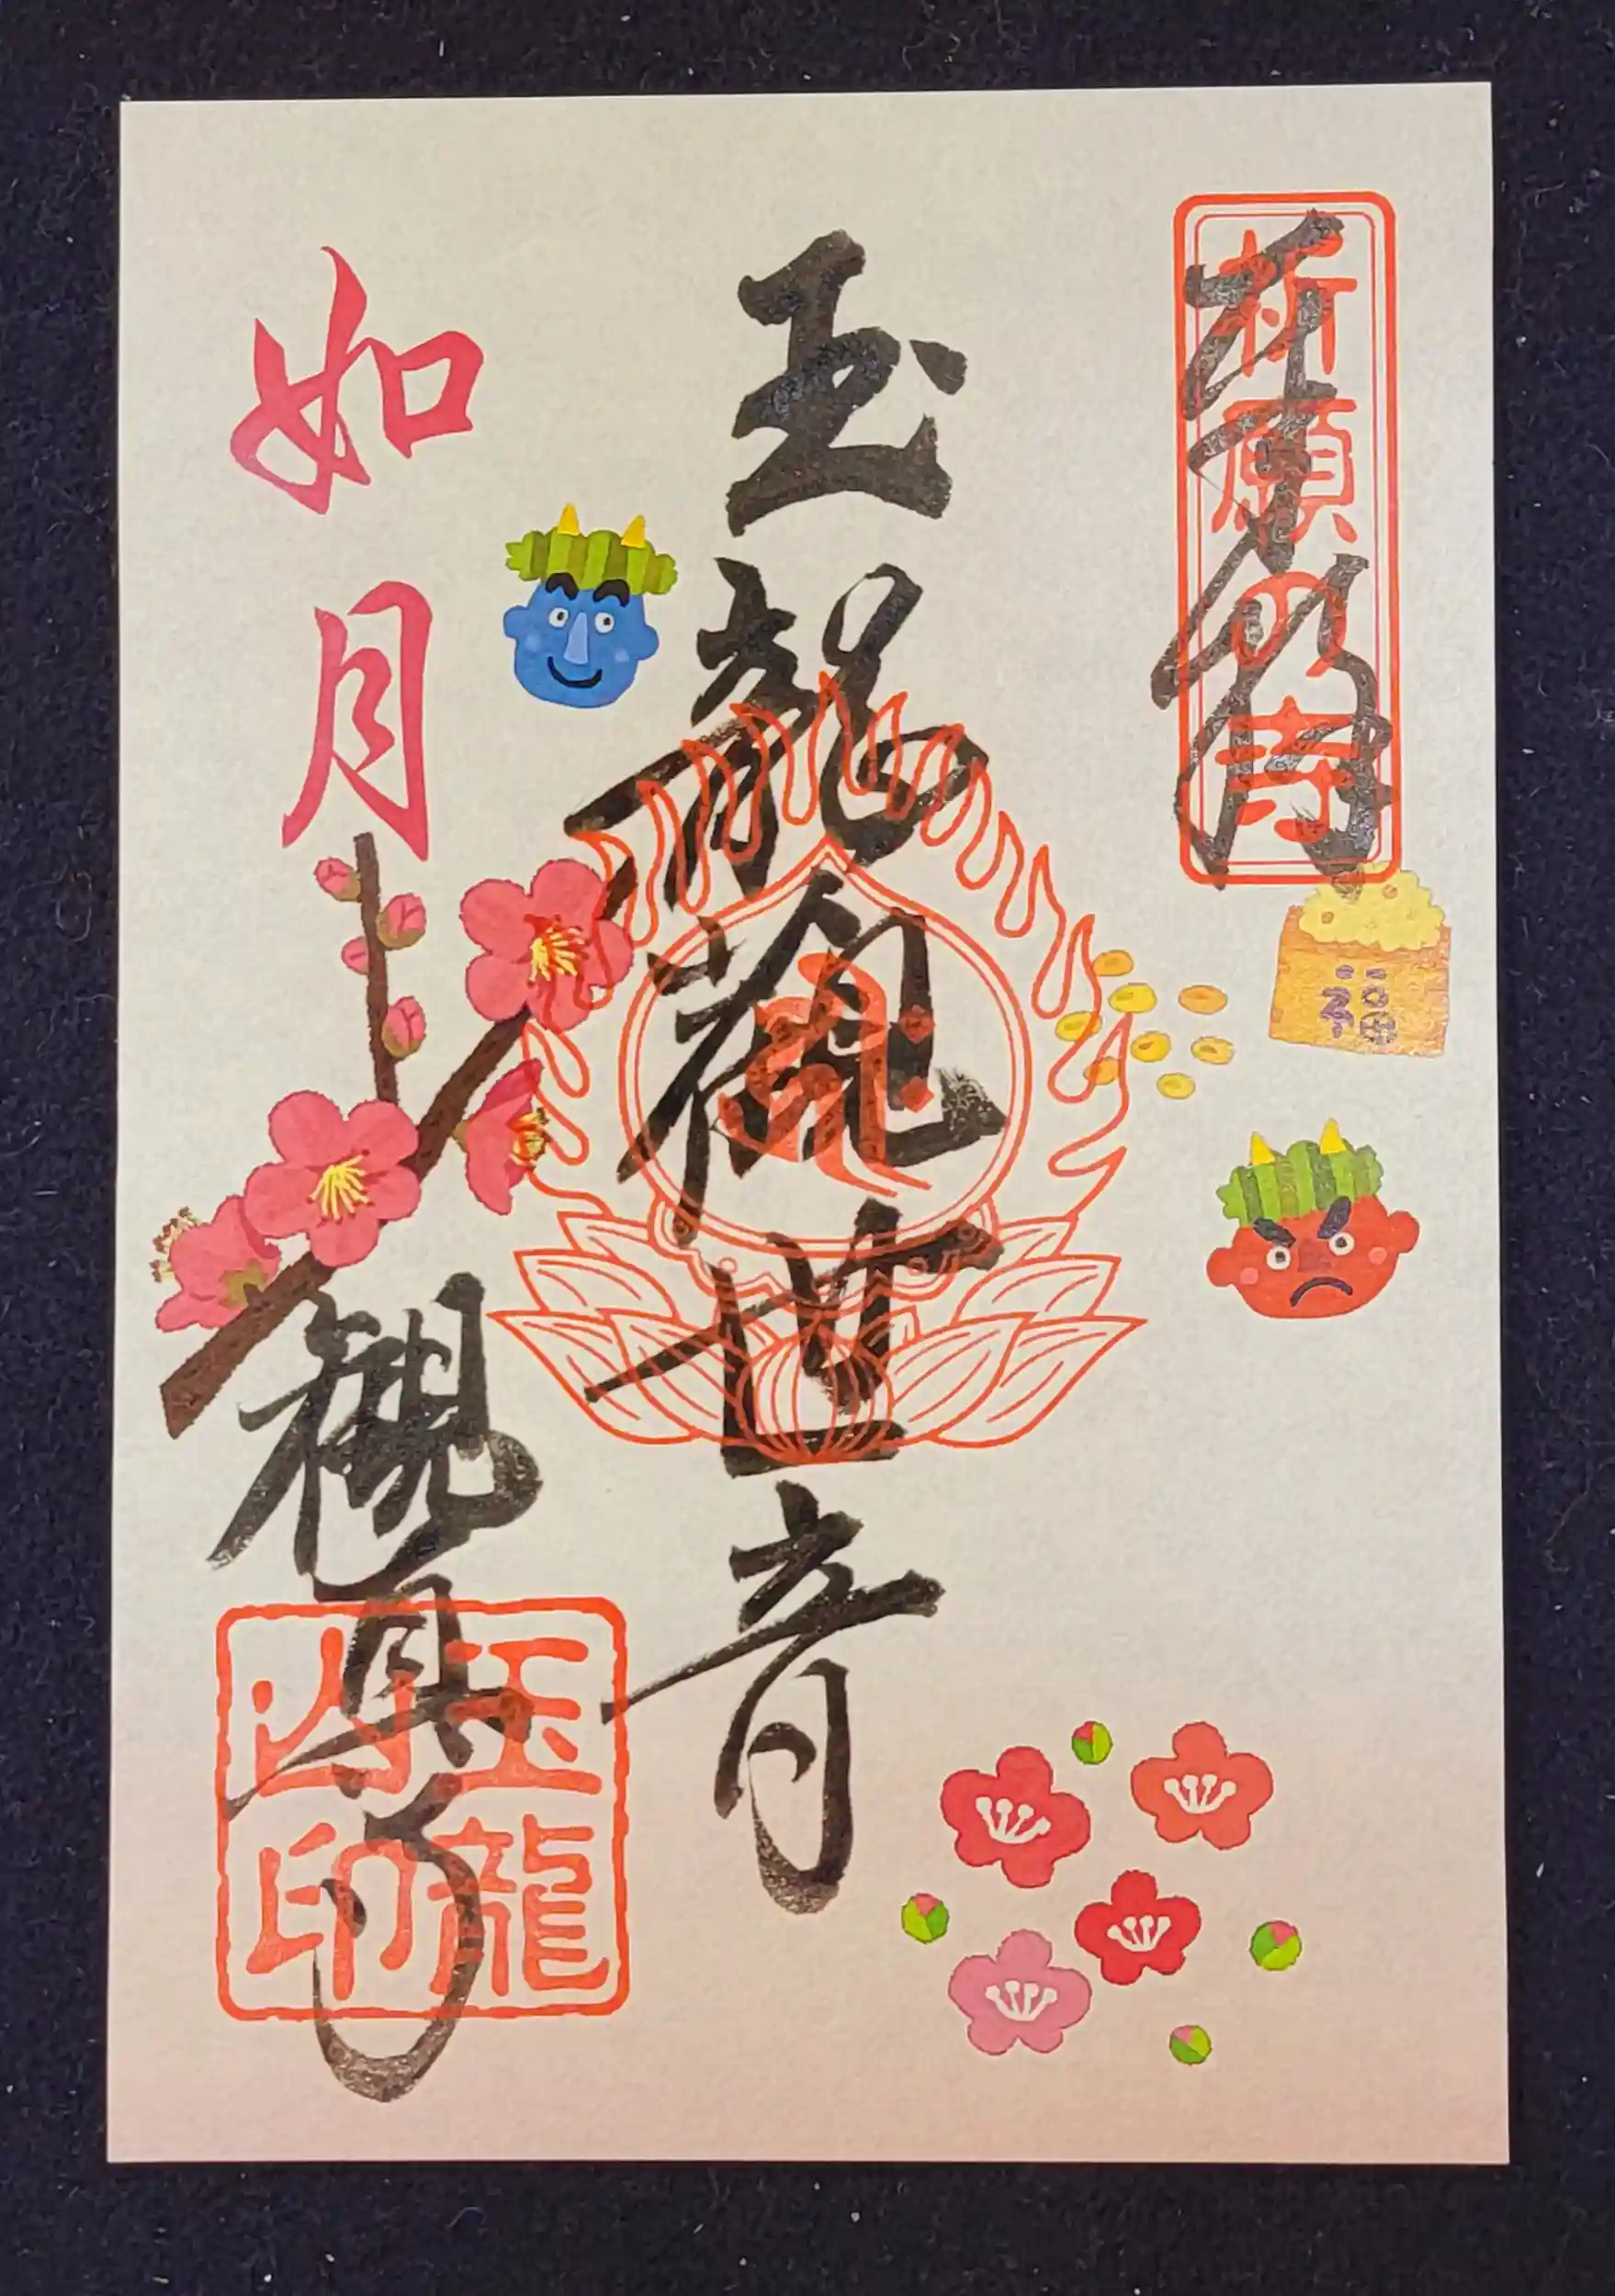 奉拝
祈願の寺
福
玉龍観世音
如月
観具寺
玉龍
山印